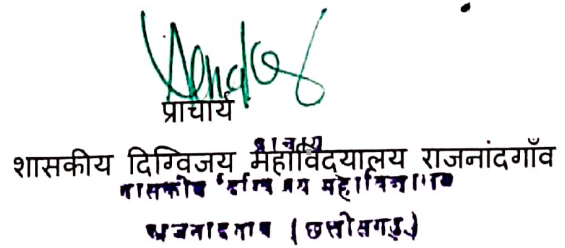 प्राचार्य
प्राचार्य
शासकीय दिग्विजय महाविदयालय राजनांदगाँव
शासकीय दिग्विजय महाविद्यालय
राजनांदगाव (छत्तीसगढ़)